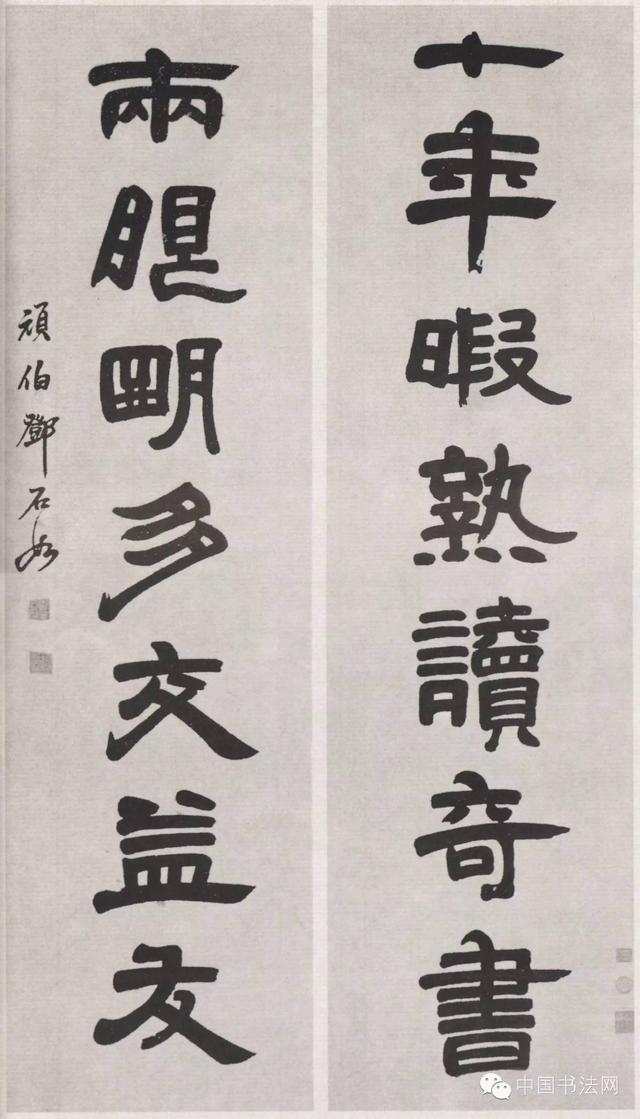 十年暇熟讀奇書
兩眼明多交益友
頑伯鄧石如
中国书法网